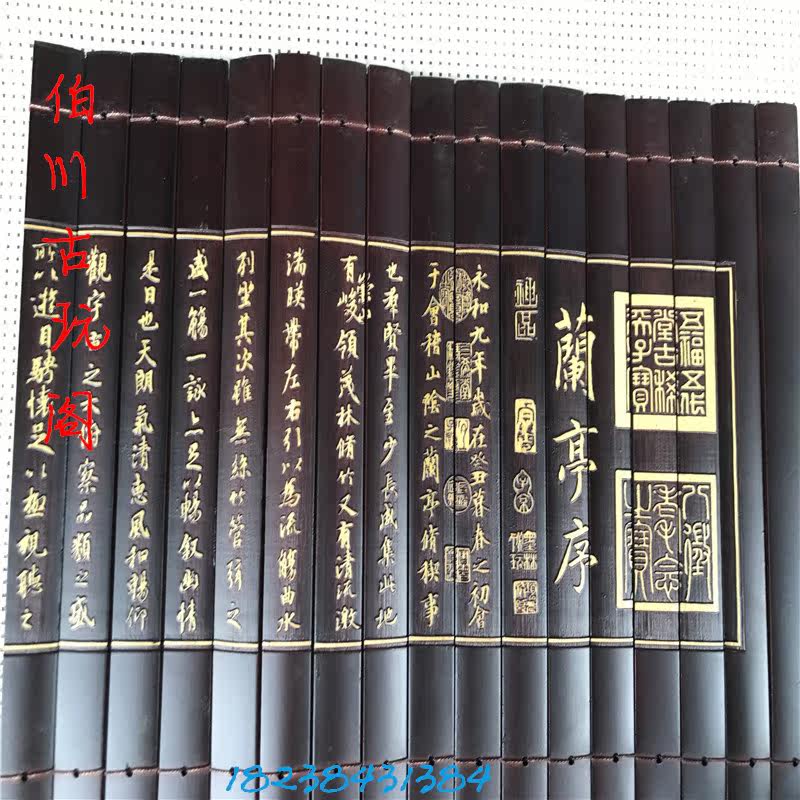 五福五代
堂古稀
天子寶
八徵
耄念
之寶
蘭亭序
永和九年歲在癸丑暮春之初會
于會稽山陰之蘭亭脩稧事
也羣賢畢至少長咸集此地
有崇山峻領茂林脩竹又有清流激
湍暎帶左右引以為流觴曲水
列坐其次雖無絲竹管弦之
盛一觴一詠亦足以暢敘幽情
是日也天朗氣清惠風和暢仰
觀宇宙之大俯察品類之盛
所以遊目騁懷足以極視聽之
伯川古玩阁
18238431384